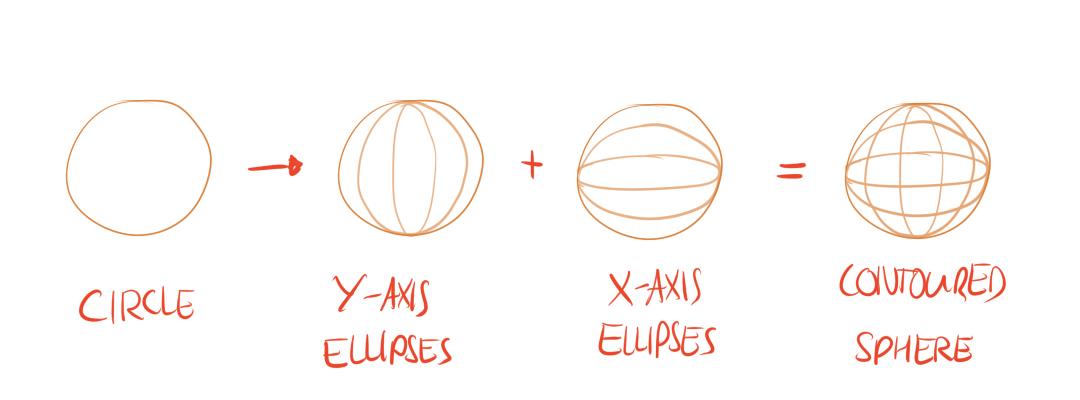 CIRCLE
Y-AXIS
ELLIPSES
+
X-AXIS
ELLIPSES
=
CONTOURED
SPHERE